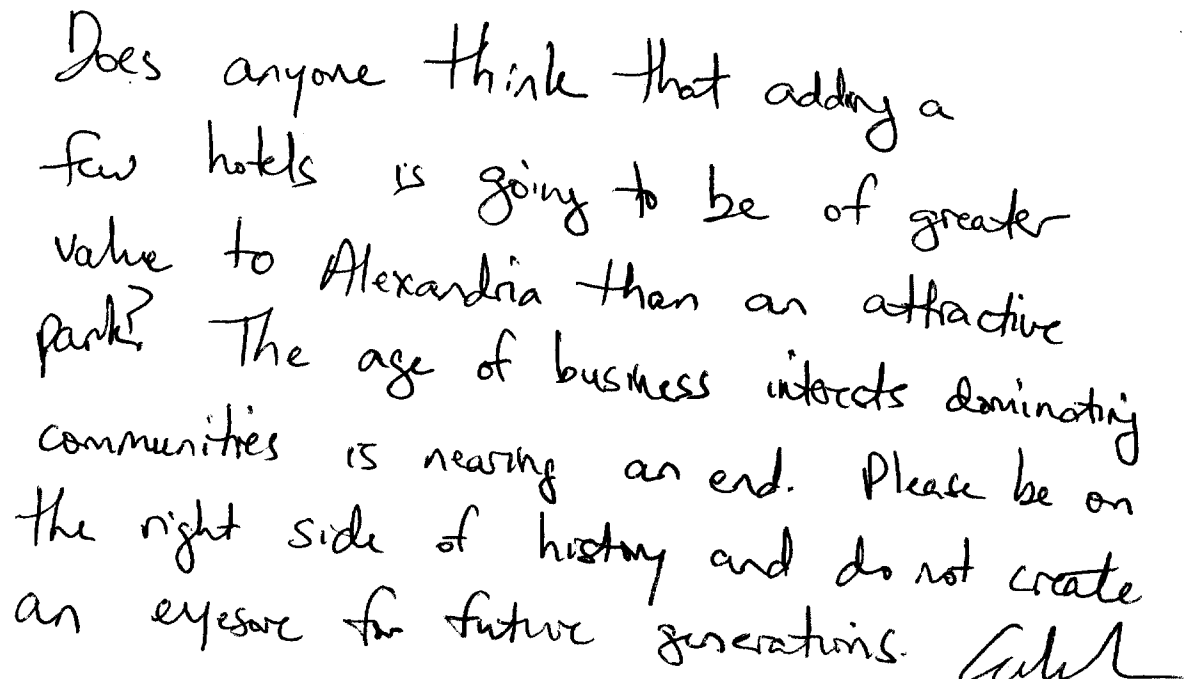 Does anyone think that adding a
few hotels is going to be of greater
value to Alexandria than an attractive
park? The age of business interests dominating
communities is nearing an end. Please be on
the right side of history and do not create
an eyesore for future generations.